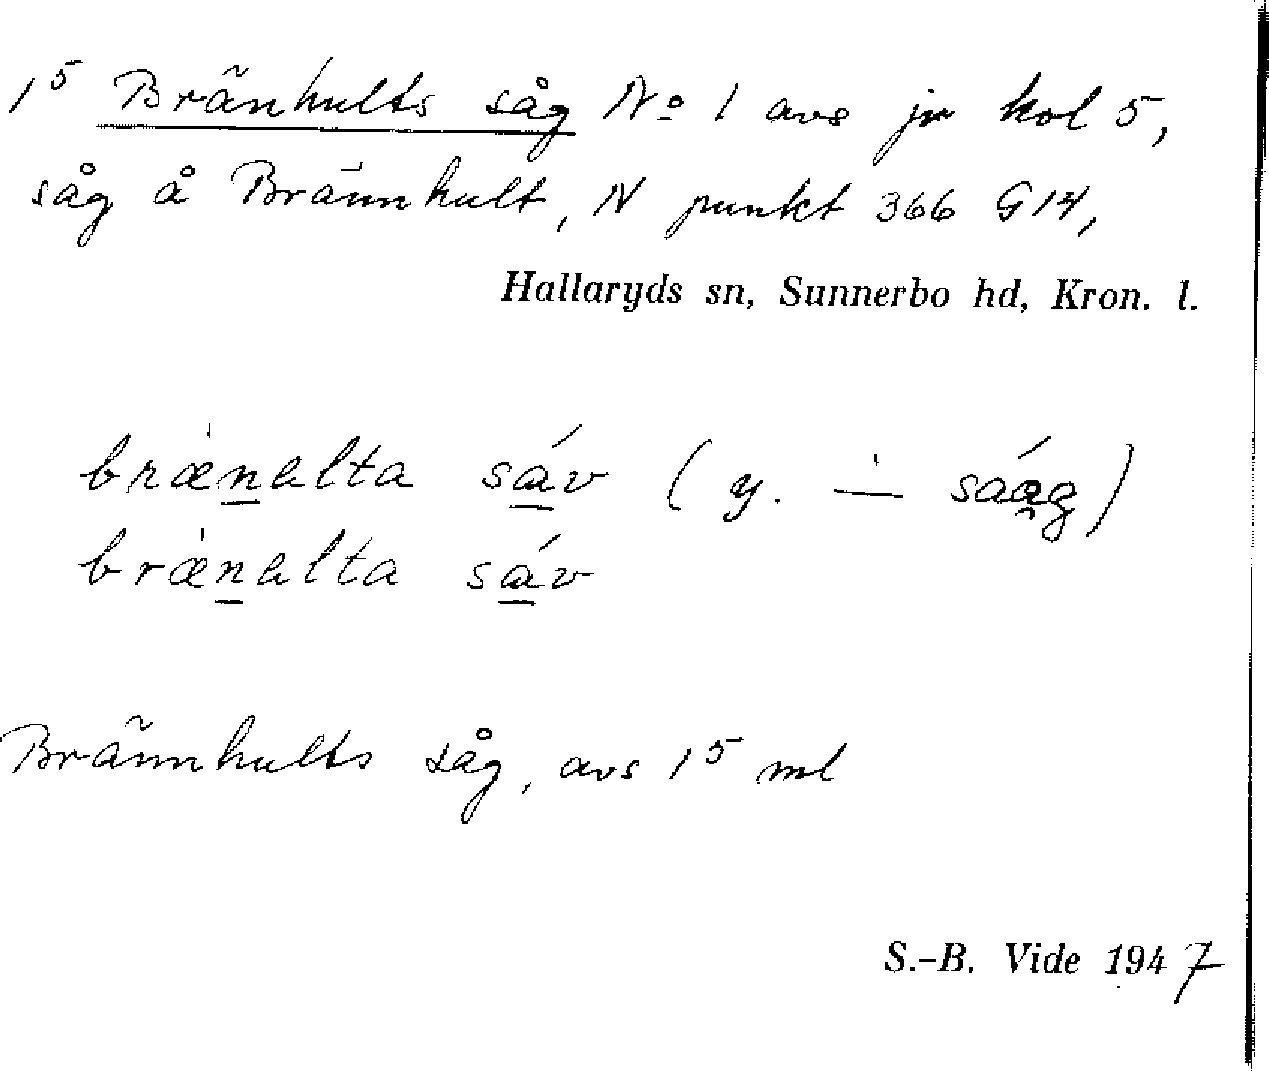 1⁵ Bränhults såg No 1 avs jr kol 5,
såg å Brännhult, N punkt 366 G14,
Hallaryds sn, Sunnerbo hd, Kron. l.
bræ̀nalta sáv ( y. — sáag)
bræ̀nalta sáv
Brännhults såg, avs 1⁵ ml
S.-B. Vide 1947